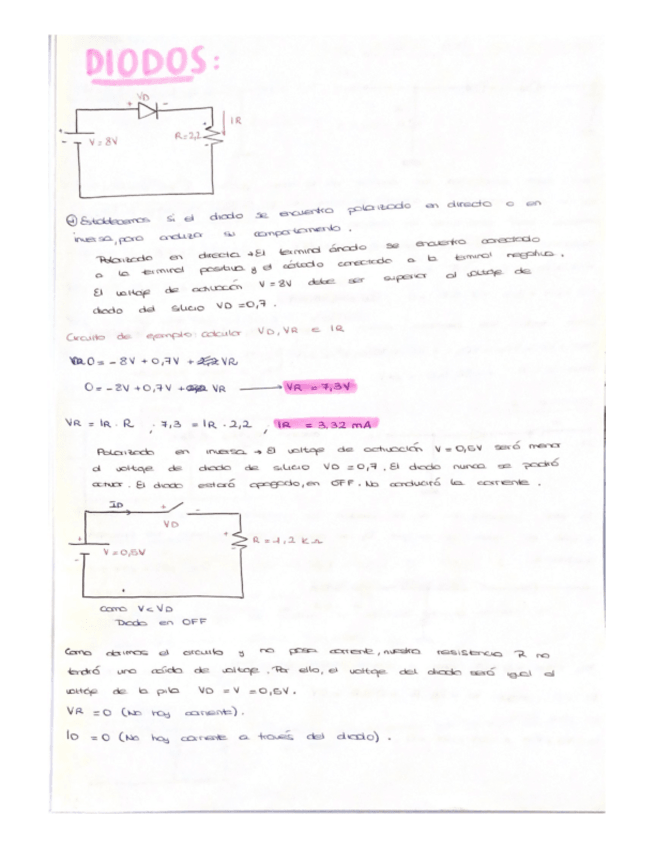 DIODOS:
VD
+ -
IR
V = 8V
R = 2,2
Establecemos si el diodo se encuentra polarizado en directo o en
inversa, para analizar su comportamiento.
Polarizado en directa → El terminal ánodo se encuentra conectado
a la terminal positiva y el cátodo conectado a la terminal negativa.
El voltaje de actuación V = 8V debe ser superior al voltaje de
diodo del silicio VD = 0,7.
Circuito de ejemplo calcular VD, VR e IR
0 = - 8V + 0,7V + VR
0 = - 8V + 0,7V + VR → VR = 7,3V
VR = IR · R ; 7,3 = IR · 2,2 , IR = 3,32 mA
Polarizado en inversa → El voltaje de actuación V = 0,6V será menor
al voltaje de diodo de silicio VD = 0,7. El diodo nunca se podrá
activar. El diodo estará apagado, en OFF. No conducirá la corriente.
ID
+ -
VD
V = 0,6V
R = 1,2 KΩ
Como V < VD
Diodo en OFF
Como abrimos el circuito y no pasa corriente, nuestra resistencia R no
tendrá una caída de voltaje. Por ello, el voltaje del diodo será igual al
voltaje de la pila VD = V = 0,6V.
VR = 0 (No hay corriente).
ID = 0 (No hay corriente a través del diodo).